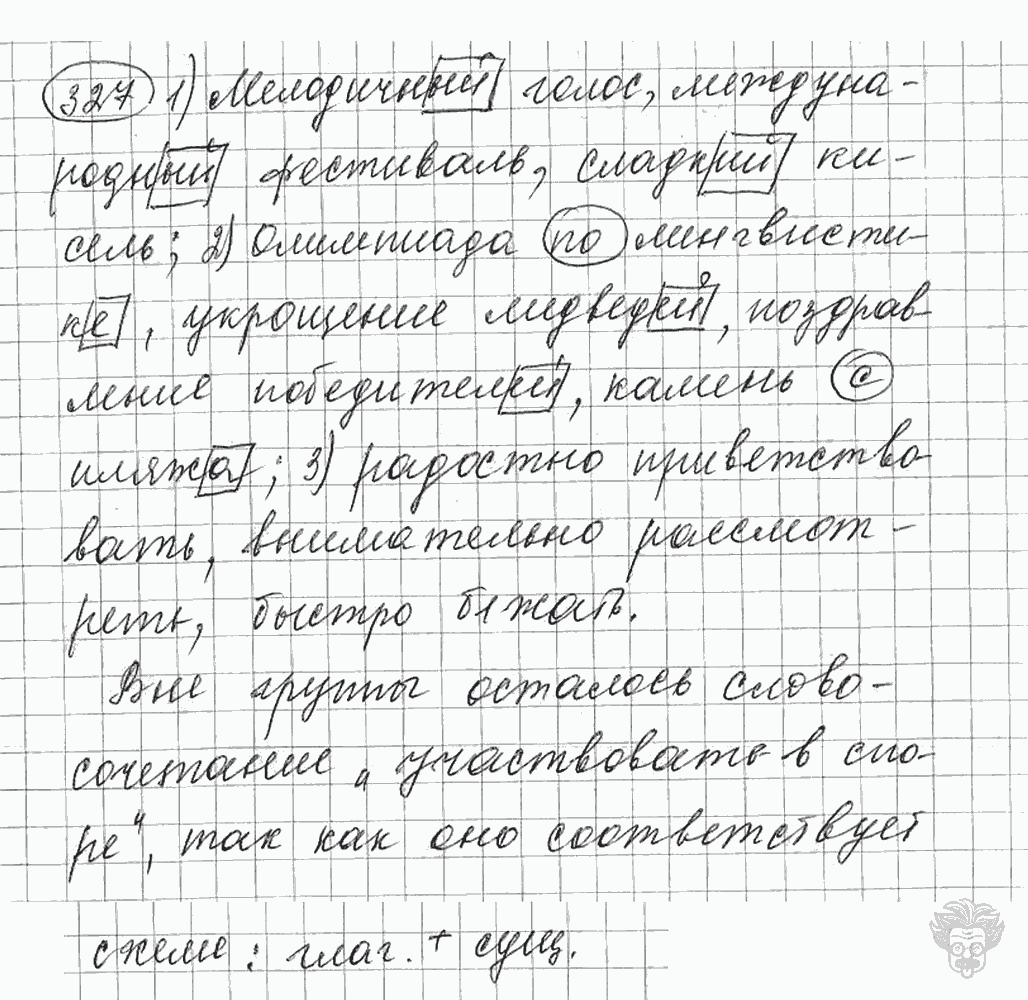 327 1) Мелодичный голос, междуна-
родный фестиваль, сладкий ки-
сель; 2) Олимпиада по лингвисти-
ке, укрощение медведей, поздрав-
ление победителей, камень с
пляжа; 3) радостно приветство-
вать, внимательно рассмот-
реть, быстро бежать.
Вне группы осталось слово-
сочетание „участвовать в спо-
ре“, так как оно соответствует
схеме: глаг. + сущ.